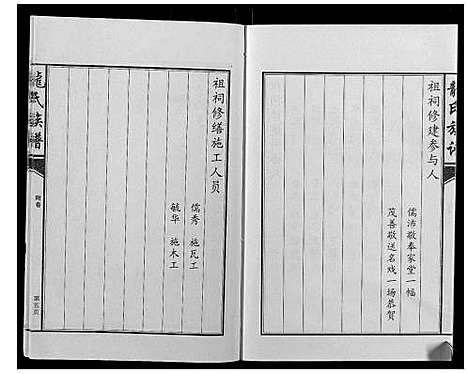 龍氏族譜
祖祠修建参与人
儒沛敬奉家堂一幅
茂善敬送名戏一场恭贺
祖祠修缮施工人员
儒秀 施瓦工
毓华 施木工
龍氏族譜
附卷
第五页